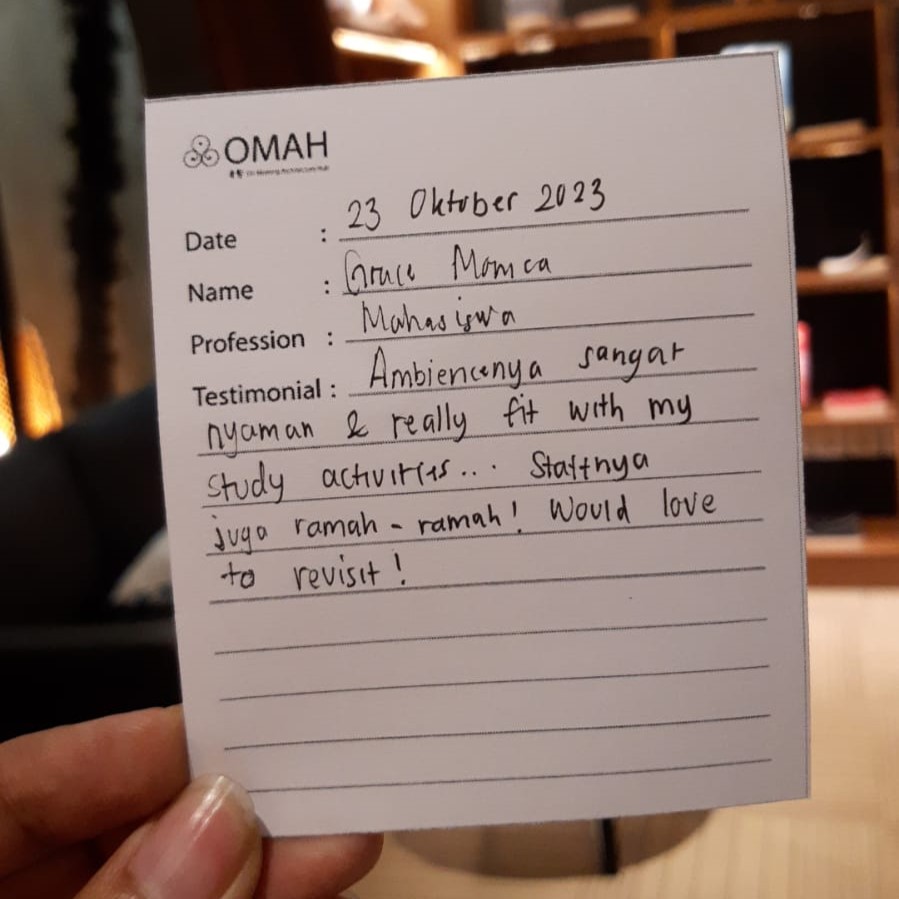 OMAH
Date : 23 Oktober 2023
Name : Grace Monica
Profession : Mahasiswa
Testimonial : Ambiencenya sangat
nyaman & really fit with my
study activities... Staffnya
juga ramah - ramah! Would love
to revisit!